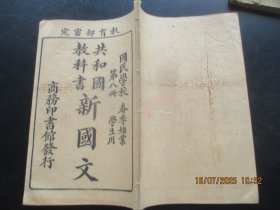 教育部審定
國民學校 春季始業
第八冊 學生用
共和國
教科書
新國文
商務印書館發行